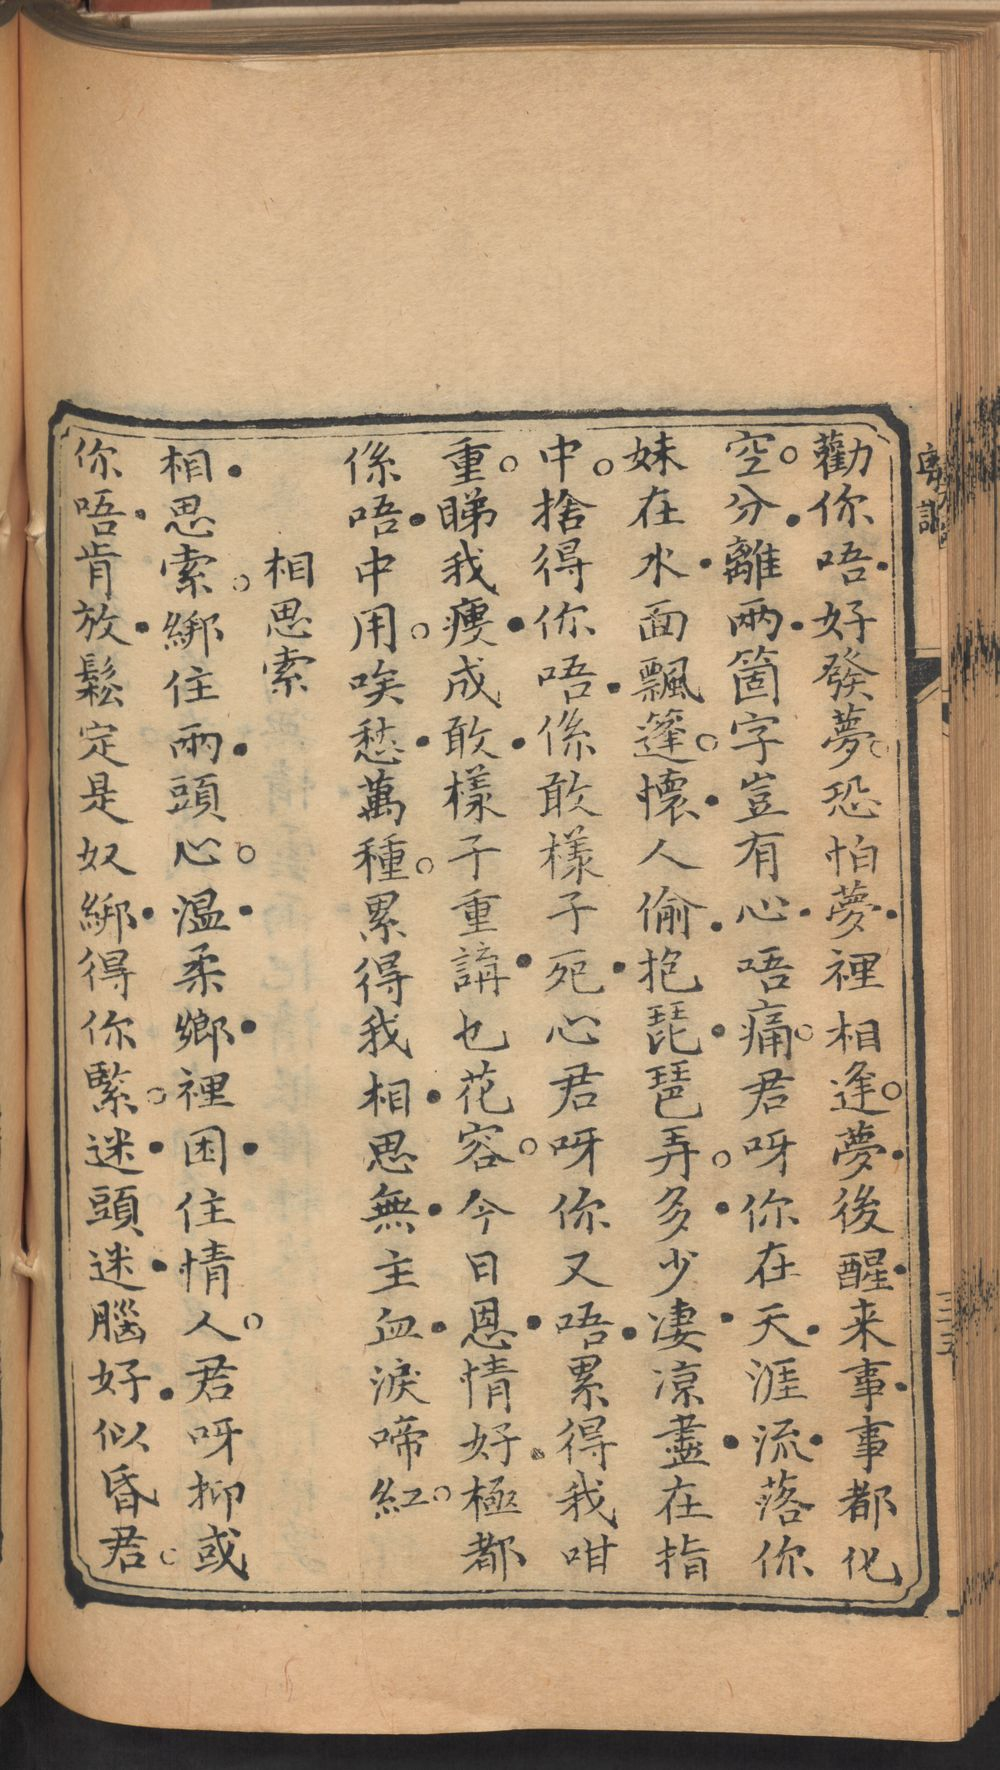 勸你唔好發夢。恐怕夢裡相逢。夢後醒来事事都化
空。分離兩箇字豈有心唔痛。君呀你在天涯流落你
妹在水面飄篷。懷人偷抱琵琶弄。多少凄凉盡在指
中。捨得你唔係敢樣子死心君呀你又唔累得我咁
重。睇我瘦成敢樣子重講乜花容。今日恩情好。極都
係唔中用。唉愁萬種。累得我相思無主血淚啼紅。
相思索
相思索。綁住兩頭心。溫柔鄉裡困住情人。君呀抑或
你唔肯放鬆定是奴綁得你緊。迷頭迷腦好似昏君。